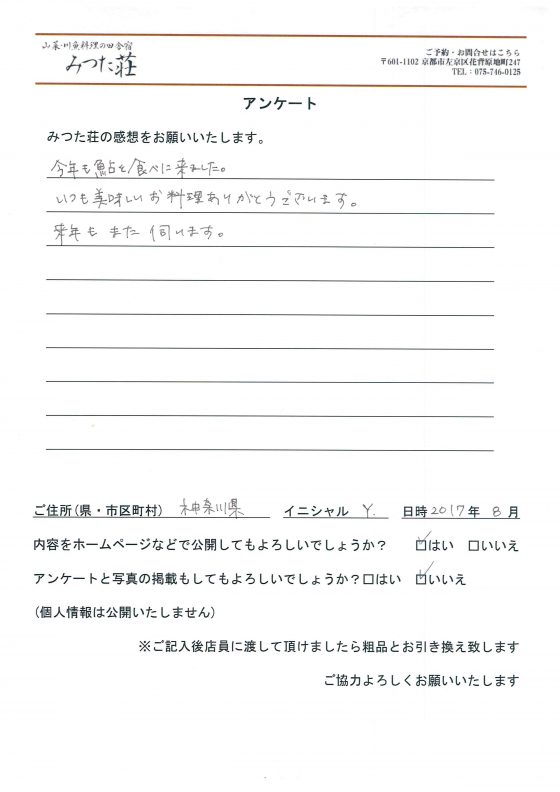 山菜・川魚料理の田舎宿
みつた荘
ご予約・お問合せはこちら
〒601-1102 京都市左京区花背原地町247
TEL：075-746-0125
アンケート
みつた荘の感想をお願いいたします。
今年も鮎を食べに来ました。
いつも美味しいお料理ありがとうございます。
来年も また 伺います。
ご住所(県・市区町村) 神奈川県 イニシャル Y. 日時2017年 8月
内容をホームページなどで公開してもよろしいでしょうか？ ☑はい □いいえ
アンケートと写真の掲載もしてもよろしいでしょうか？□はい ☑いいえ
(個人情報は公開いたしません)
※ご記入後店員に渡して頂けましたら粗品とお引き換え致します
ご協力よろしくお願いいたします